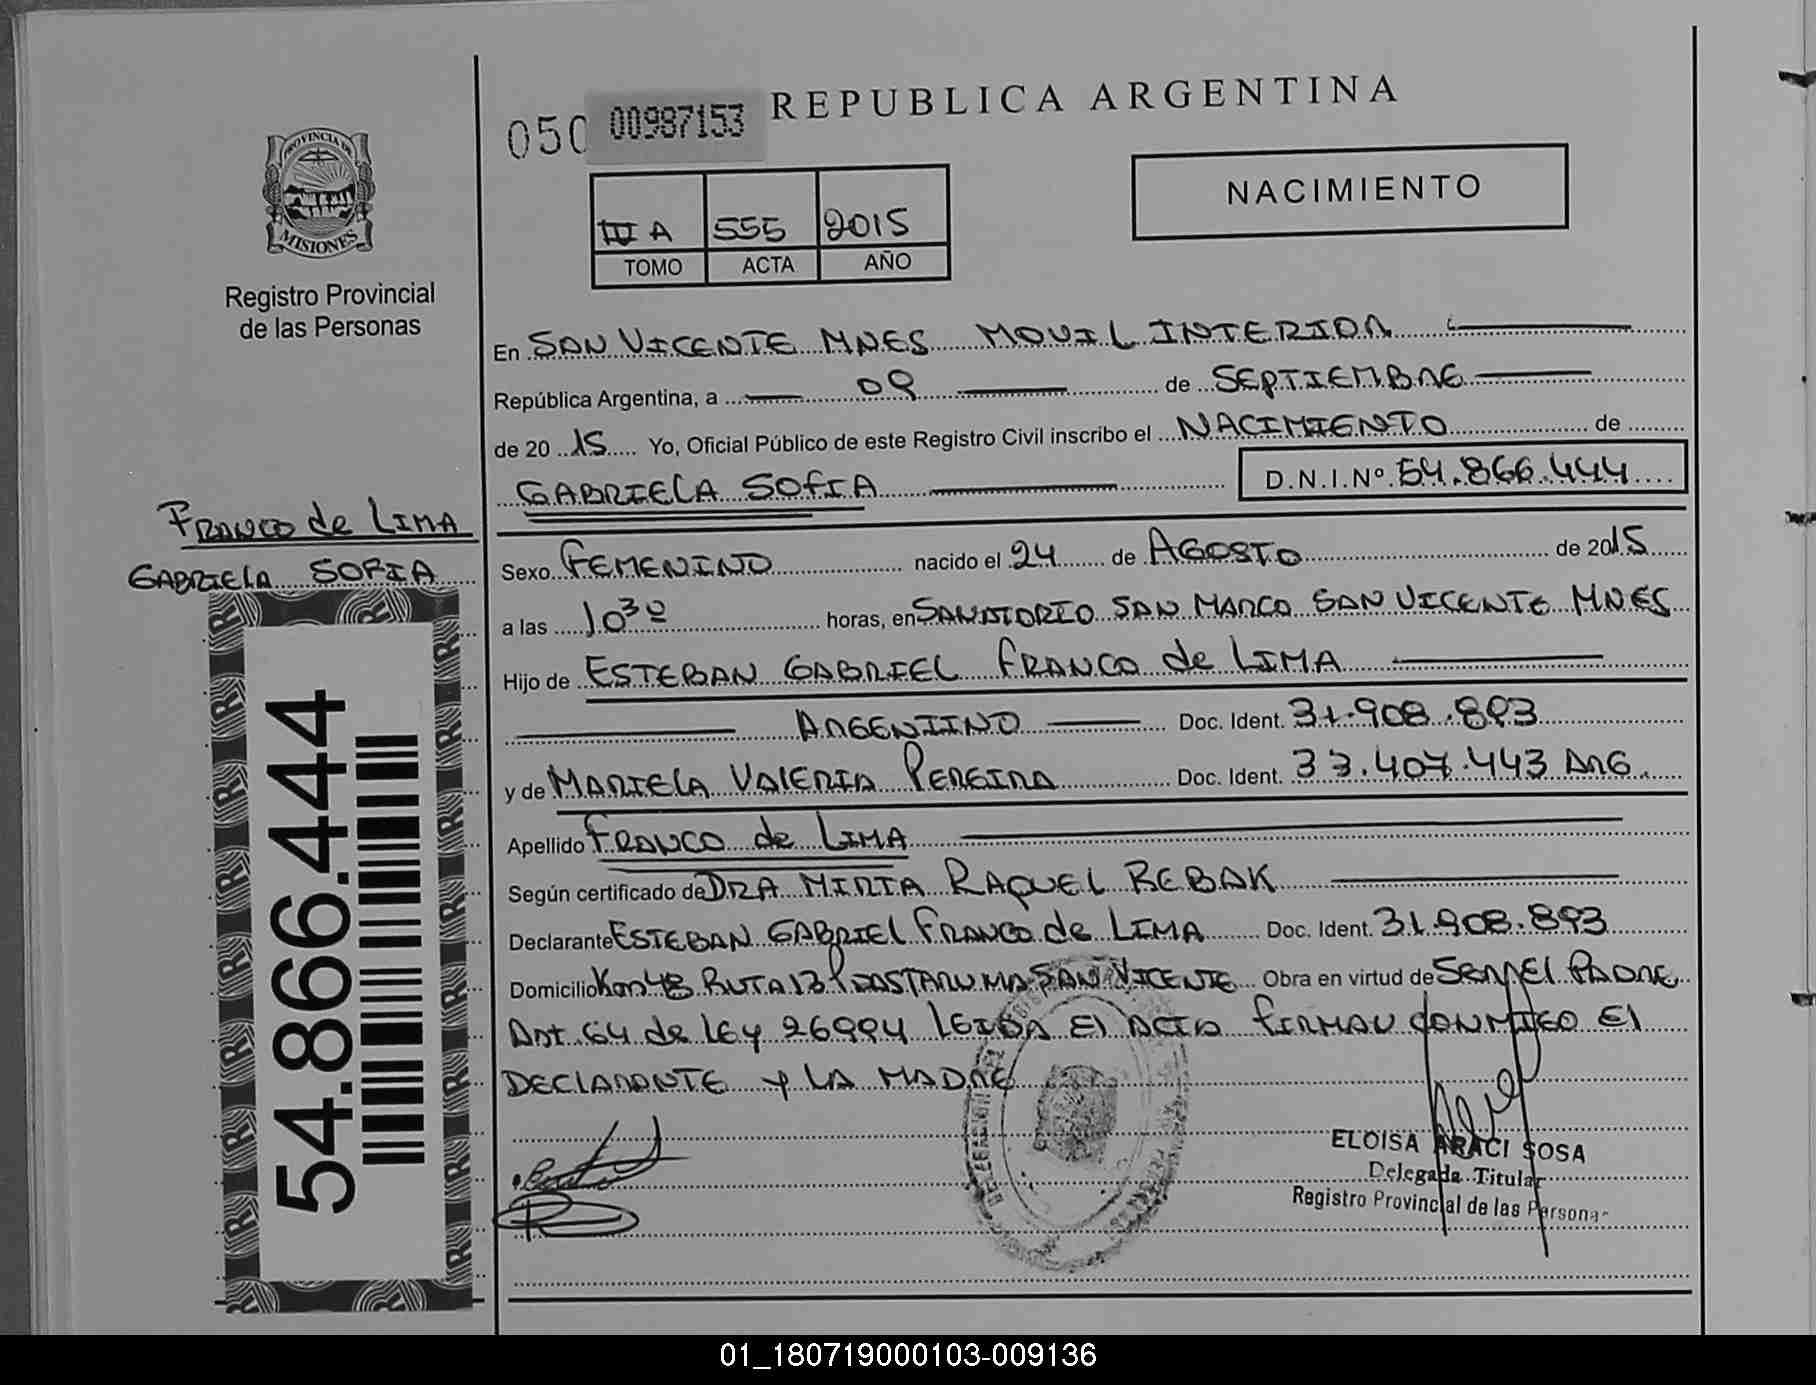 REPUBLICA ARGENTINA
050 00987153
NACIMIENTO
PROVINCIA DE
MISIONES
Registro Provincial
de las Personas
A 555 2015
TOMO ACTA AÑO
En SAN VICENTE MNES MOVIL INTERIOR
República Argentina, a 09 de SEPTIEMBRE
de 20 15 Yo, Oficial Público de este Registro Civil inscribo el NACIMIENTO de
GABRIELA SOFIA D.N.I.Nº 54.866.444
FRANCO de LIMA
GABRIELA SOFIA
Sexo FEMENINO nacido el 24 de AGOSTO de 2015
a las 10 30 horas, en SANATORIO SAN MARCO SAN VICENTE MNES
Hijo de ESTEBAN GABRIEL FRANCO de LIMA
ARGENTINO Doc. Ident. 31.908.893
y de MARIELA VALERIA PEREIRA Doc. Ident. 33.407.443 ARG.
Apellido FRANCO de LIMA
Según certificado de DRA MIRTA RAQUEL REBAK
Declarante ESTEBAN GABRIEL FRANCO de LIMA Doc. Ident. 31.908.893
Domicilio Km 48 RUTA 13 SAN VICENTE Obra en virtud de SER El PADRE
Art 64 de LEy 26994 LEIDA El ACTA FIRMAN CONMIGO El
DECLARANTE y LA MADRE
54.866.444
ELOISA ARACI SOSA
Delegada Titular
Registro Provincial de las Personas
01_180719000103-009136